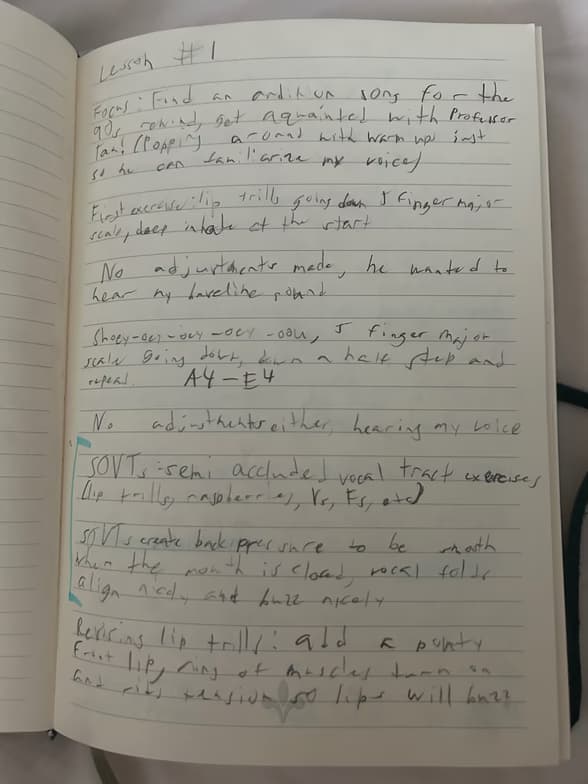 Lesson #1
Focus: Find an audition song for the
90s rewind, get aquainted with Professor
(Popping around with warm ups just
so he can familiarize my voice)
First exercise: lip trills going down 5 finger major
scale, deep inhale at the start
No adjustments made, he wanted to
hear my baseline sound
5 finger major
scale going down, down a half step and
repeat. A4-E4
No adjustments either, hearing my voice
SOVTs: semi accluded vocal tract exercises
(lip trills, raspberries, Vs, Fs, etc)
SOVTs create back pressure to be
when the mouth is closed, vocal folds
align nicely and buzz nicely
Revising lip trills: add a pouty
front lip, ring of muscles turn on
and tension so lips will buzz